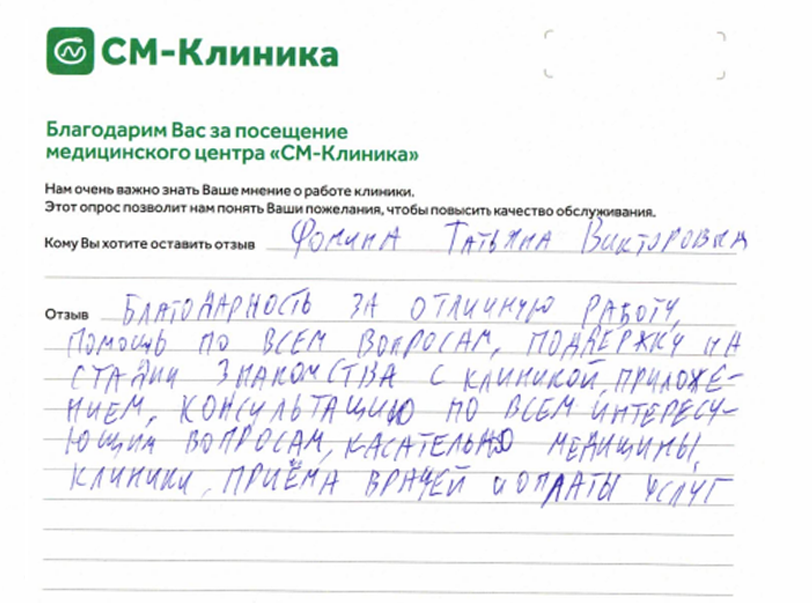 СМ-Клиника
Благодарим Вас за посещение
медицинского центра «СМ-Клиника»
Нам очень важно знать Ваше мнение о работе клиники.
Этот опрос позволит нам понять Ваши пожелания, чтобы повысить качество обслуживания.
Кому Вы хотите оставить отзыв Фомина Татьяна Викторовна
Отзыв БЛАГОДАРНОСТЬ ЗА ОТЛИЧНУЮ РАБОТУ,
ПОМОЩЬ ПО ВСЕМ ВОПРОСАМ, ПОДДЕРЖКУ НА
СТАДИИ ЗНАКОМСТВА С КЛИНИКОЙ, ПРИЛОЖЕ-
НИЕМ, КОНСУЛЬТАЦИЮ ПО ВСЕМ ИНТЕРЕСУ-
ЮЩИМ ВОПРОСАМ, КАСАТЕЛЬНО МЕДИЦИНЫ,
КЛИНИКИ, ПРИЁМА ВРАЧЕЙ И ОПЛАТЫ УСЛУГ